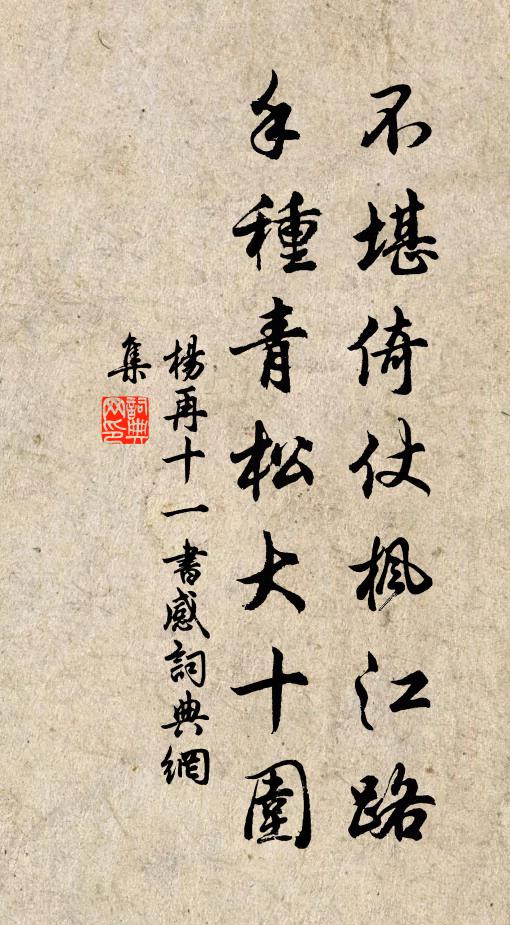 不堪倚仗楓江路
手種青松大十圍
楊再十一書感詞典網
集
詞典
网印